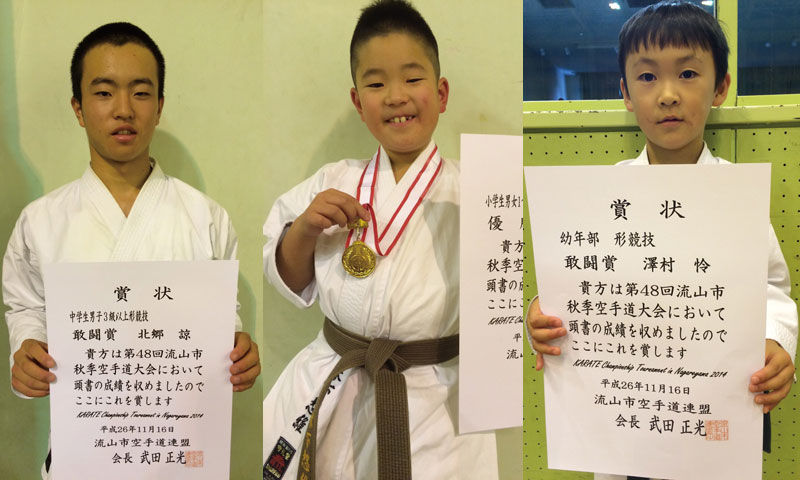 賞状
中学生男子3級以上形競技
敢闘賞 北郷 諒
貴方は第48回流山市
秋季空手道大会において
頭書の成績を収めましたので
ここにこれを賞します
KARATE Championship Tournamet in Nagareyama 2014
平成26年11月16日
流山市空手道連盟
会長 武田 正光
小学生男女1
優
貴方
秋季空
頭書の
ここに
KARATE Cham
平成
流山
賞状
幼年部 形競技
敢闘賞 澤村 怜
貴方は第48回流山市
秋季空手道大会において
頭書の成績を収めましたので
ここにこれを賞します
KARATE Championship Tournamet in Nagareyama 2014
平成26年11月16日
流山市空手道連盟
会長 武田 正光